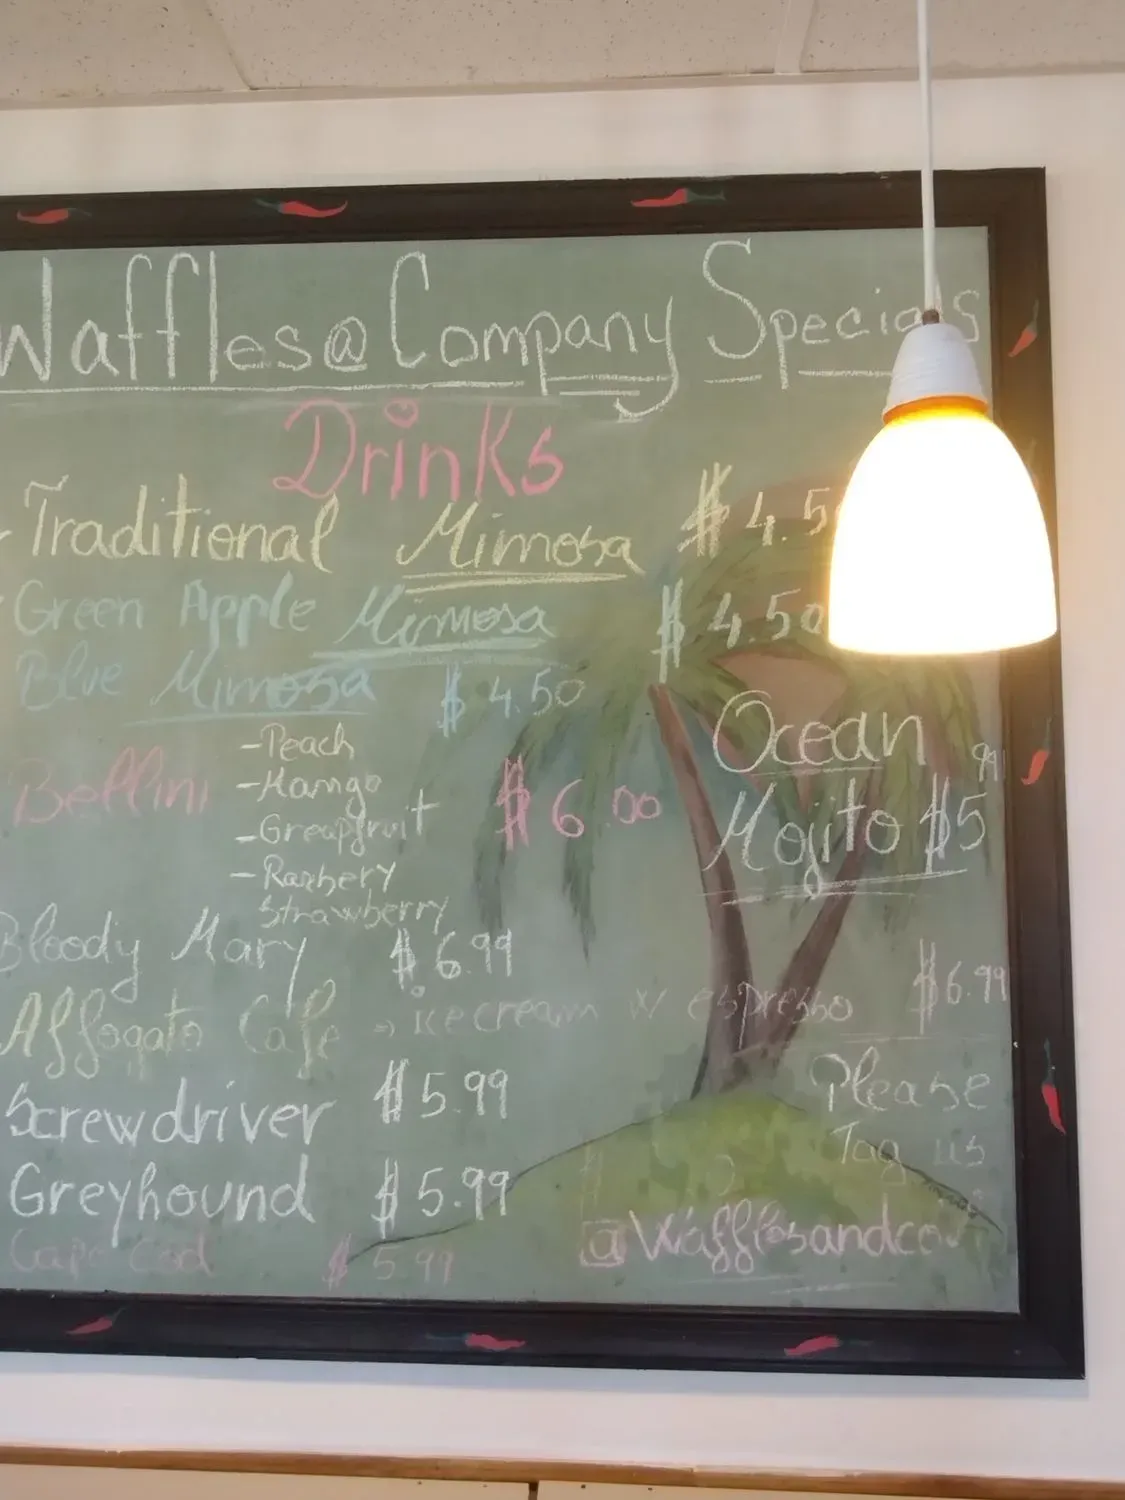 Waffles@Company Specials
Drinks
- Traditional Mimosa $4.5
Green Apple Mimosa $4.50
Blue Mimosa $4.50
Bellini $6.00
-Peach
-Mango
-Greapfruit
-Rasbery
Strawberry
Ocean
Mojito $5 99
Bloody Mary $6.99
Affogato Cafe → icecream w espresso $6.99
Screwdriver $5.99
Greyhound $5.99
Cape Cod $5.99
Please
Tag us